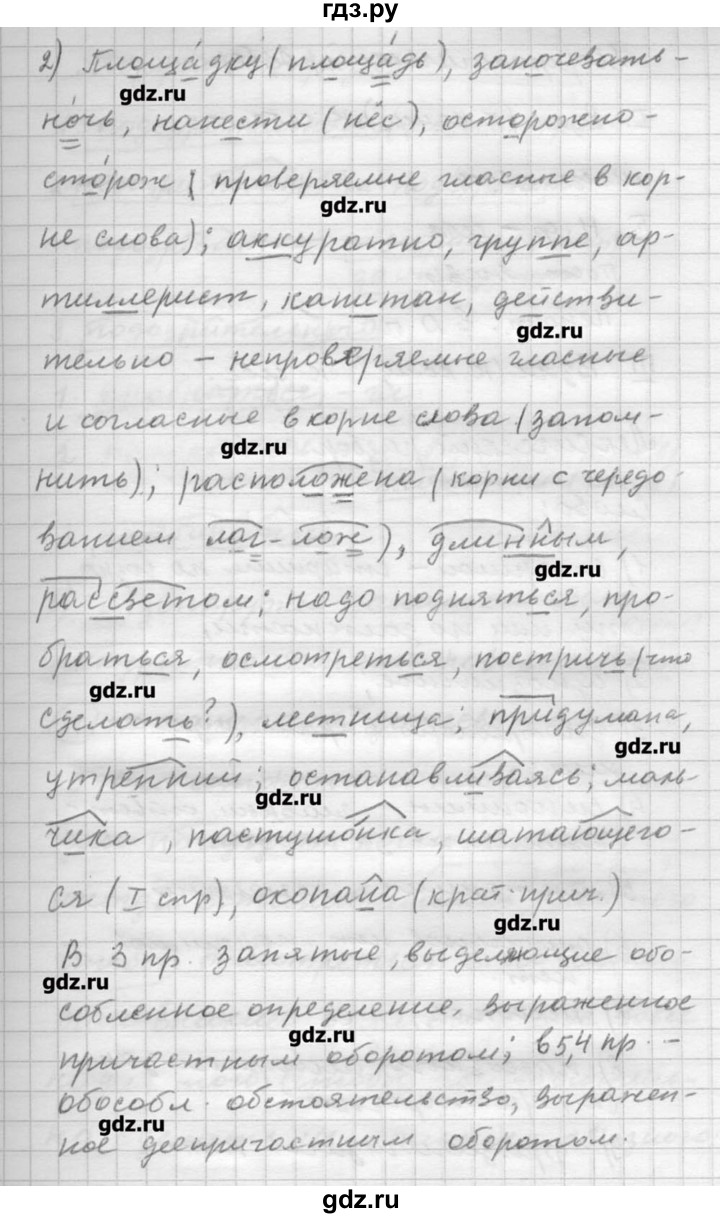 гдз.ру
2) Площа́дку (площа́дь), заночевать-
gdz.ru
но́чь, нанести (нёс), осторожно-
сто́рож ( проверяемые гласные в кор-
gdz.ru
не слова); аккуратно, группе, ар-
тиллерист, капитан, действи-
gdz.ru
тельно – непроверяемые гласные
и согласные в корне слова (запом-
gdz.ru
нить); расположена (корни с чередо-
ванием лаг-лож), длинным,
gdz.ru
рассветом; надо подняться, про-
браться, осмотреться, постричь (что
gdz.ru
сделать?), лестница; придумана,
gdz.ru
утренний; останавливаясь; маль-
gdz.ru
чика, пастушонка, шатающего-
ся (I спр), охопана (крат. прич.)
gdz.ru
В 3 пр. запятые, выделяющие обо-
gdz.ru
собленное определение, выраженное
gdz.ru
причастным оборотом; в 5,4 пр. –
обособл. обстоятельство, выражен-
gdz.ru
ное деепричастным оборотом.
gdz.ru